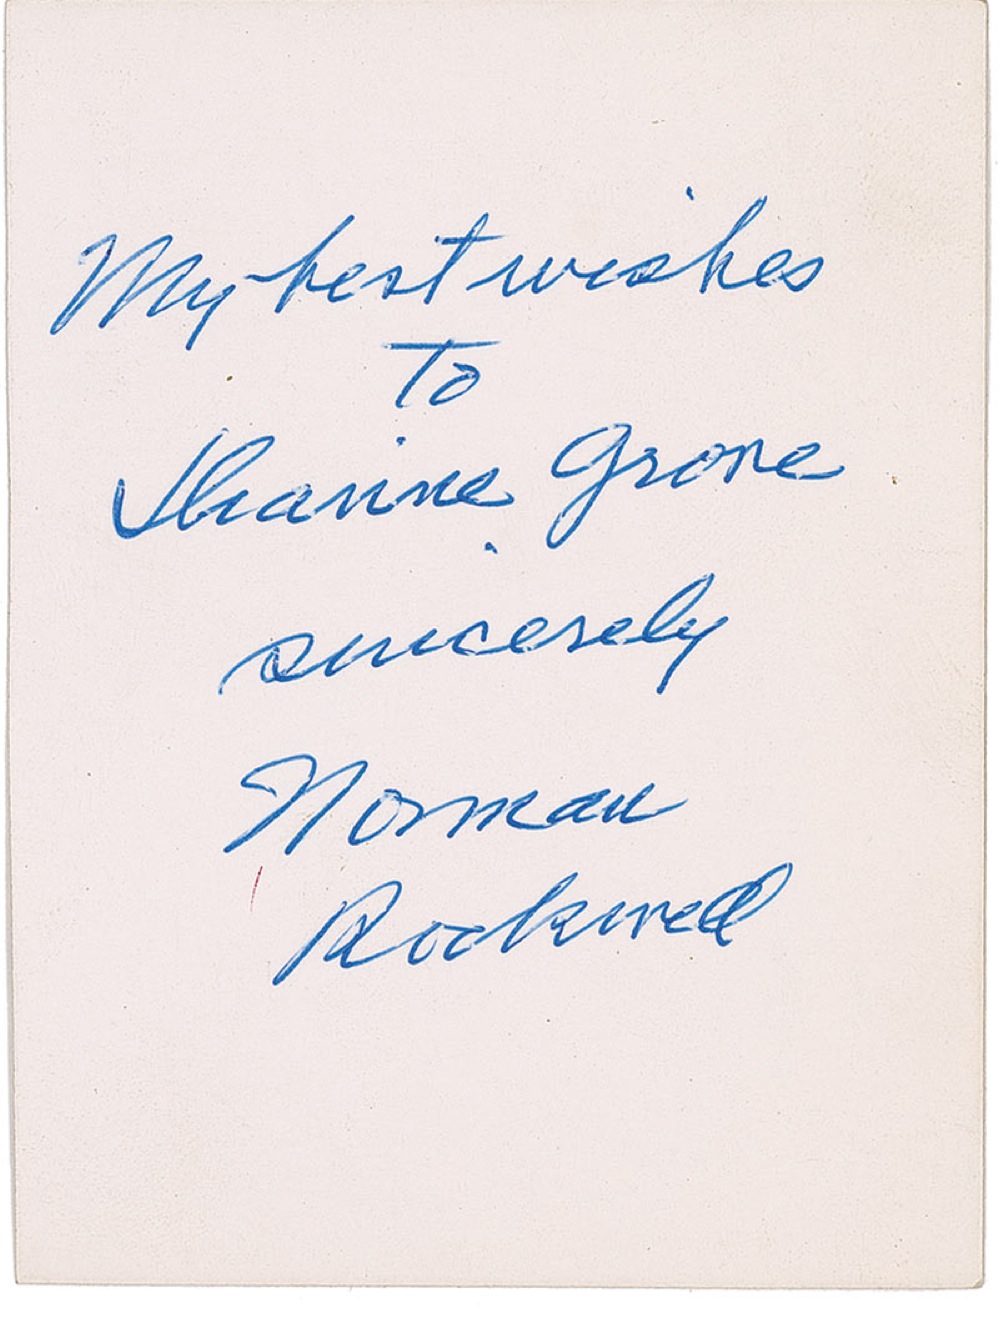 My best wishes
To
Jeanine Grove
sincerely
Norman
Rockwell